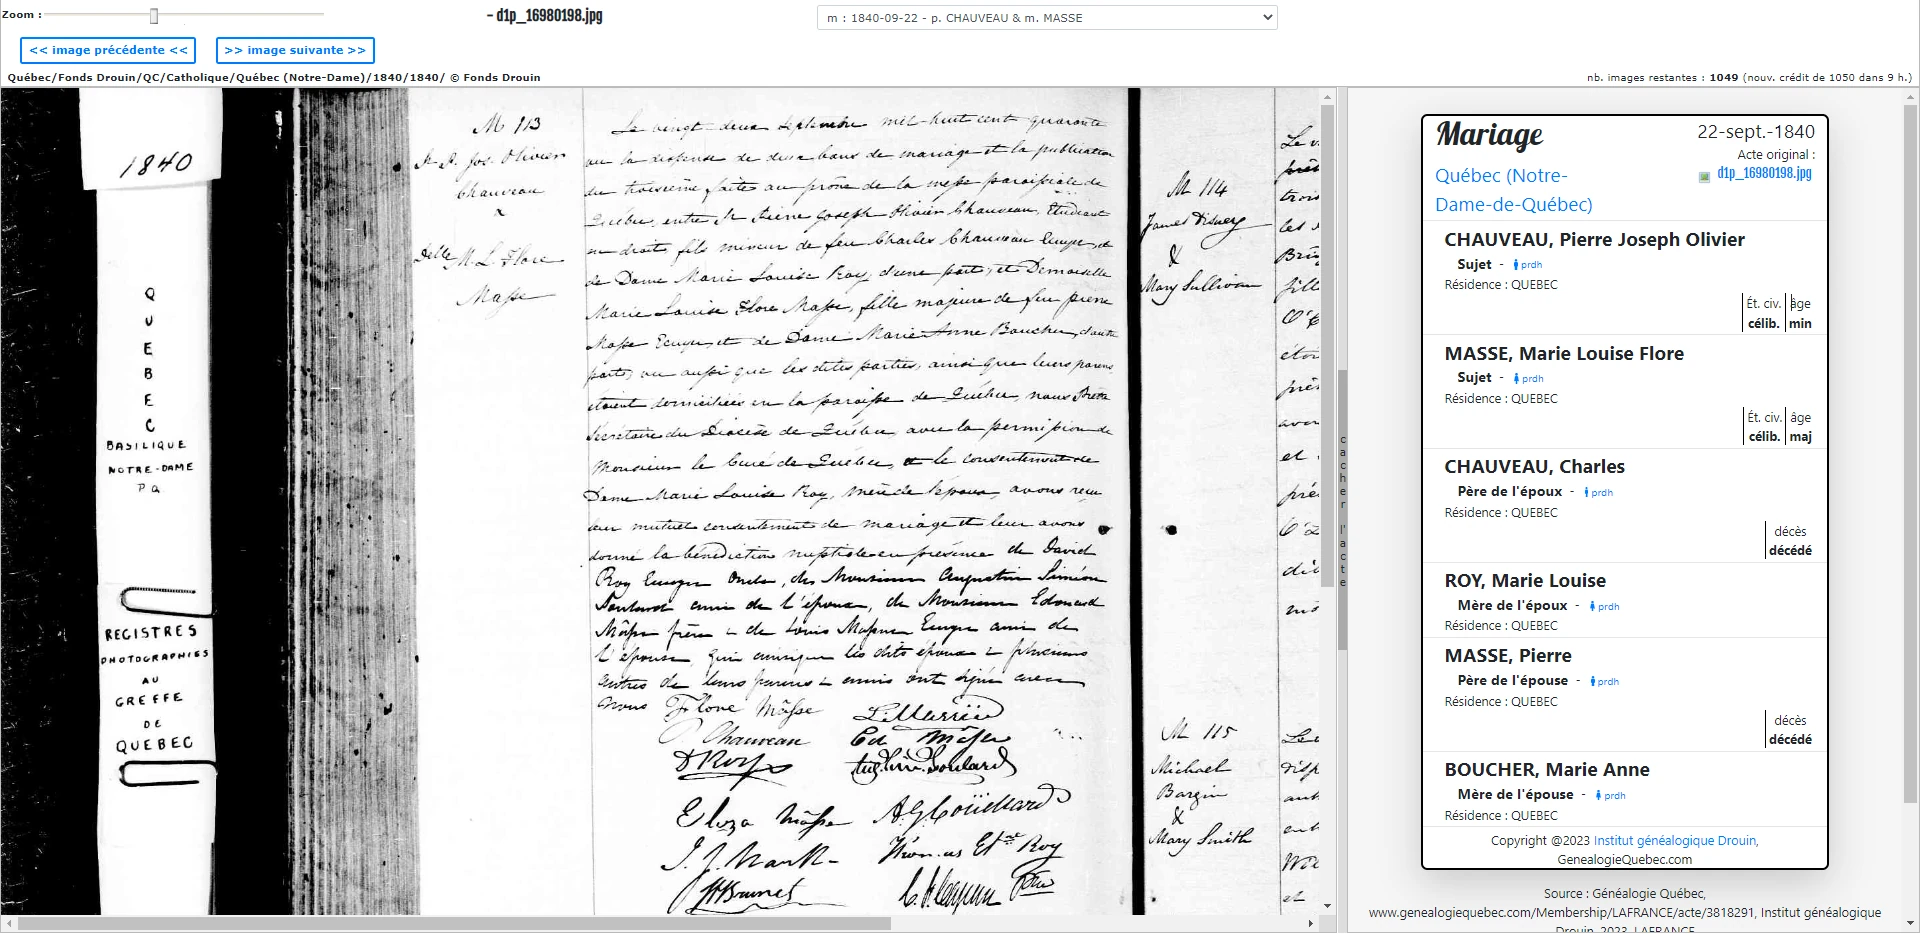 Zoom :
- d1p_16980198.jpg
m : 1840-09-22 - p. CHAUVEAU & m. MASSE
<< image précédente <<
>> image suivante >>
Québec/Fonds Drouin/QC/Catholique/Québec (Notre-Dame)/1840/1840/ © Fonds Drouin
nb. images restantes : 1049 (nouv. crédit de 1050 dans 9 h.)
1840
QUEBEC
BASILIQUE
NOTRE-DAME
PQ
REGISTRES
PHOTOGRAPHIES
AU
GREFFE
DE
QUEBEC
M 113
Jos. Olivier
Chauveau
Delle M. L. Flore
Masse
Le vingt-deux septembre mil-huit cent quarante
vu la dispense de deux bans de mariage et la publication
du troisième faite au prône de la messe paroissiale de
Québec, entre Pierre Joseph Olivier Chauveau, Etudiant
en droit, fils mineur de feu Charles Chauveau Ecuyer, et
de Dame Marie Louise Roy, d'une part; et Demoiselle
Marie Louise Flore Masse, fille majeure de feu Pierre
Masse Ecuyer, et de Dame Marie Anne Boucher, d'autre
part; vu aussi que les dites parties, ainsi que leurs parens
étoient domiciliées en la paroisse de Québec, nous Prêtre
Secrétaire du Diocèse de Québec, avec la permission de
Monsieur le Curé de Québec, et le consentement de
Dame Marie Louise Roy, mère de l'époux, avons reçu
leur mutuel consentement de mariage et leur avons
donné la bénédiction nuptiale en présence de David
Roy Ecuyer Oncle, de Monsieur Augustin Siméon
Soulard ami de l'époux, de Monsieur Edouard
Mâsse frère & de Louis Massue Ecuyer ami de
l'épouse, qui ainsi que les dits époux & plusieurs
autres de leurs parens & amis ont signé avec
nous Flore Mâsse
P. Chauveau Ed Mâsse
D Roy Soulard
Eliza Mâsse
Roy
Ptre
M 114
James Disney
&
Mary Sullivan
M 115
Michael
&
Mary Smith
cacher l'acte
Mariage
22-sept.-1840
Acte original :
d1p_16980198.jpg
Québec (Notre-
Dame-de-Québec)
CHAUVEAU, Pierre Joseph Olivier
Sujet - prdh
Résidence : QUEBEC
Ét. civ. âge
célib. min
MASSE, Marie Louise Flore
Sujet - prdh
Résidence : QUEBEC
Ét. civ. âge
célib. maj
CHAUVEAU, Charles
Père de l'époux - prdh
Résidence : QUEBEC
décès
décédé
ROY, Marie Louise
Mère de l'époux - prdh
Résidence : QUEBEC
MASSE, Pierre
Père de l'épouse - prdh
Résidence : QUEBEC
décès
décédé
BOUCHER, Marie Anne
Mère de l'épouse - prdh
Résidence : QUEBEC
Copyright @2023 Institut généalogique Drouin,
GenealogieQuebec.com
Source : Généalogie Québec,
www.genealogiequebec.com/Membership/LAFRANCE/acte/3818291, Institut généalogique
Drouin, 2023, LAFRANCE